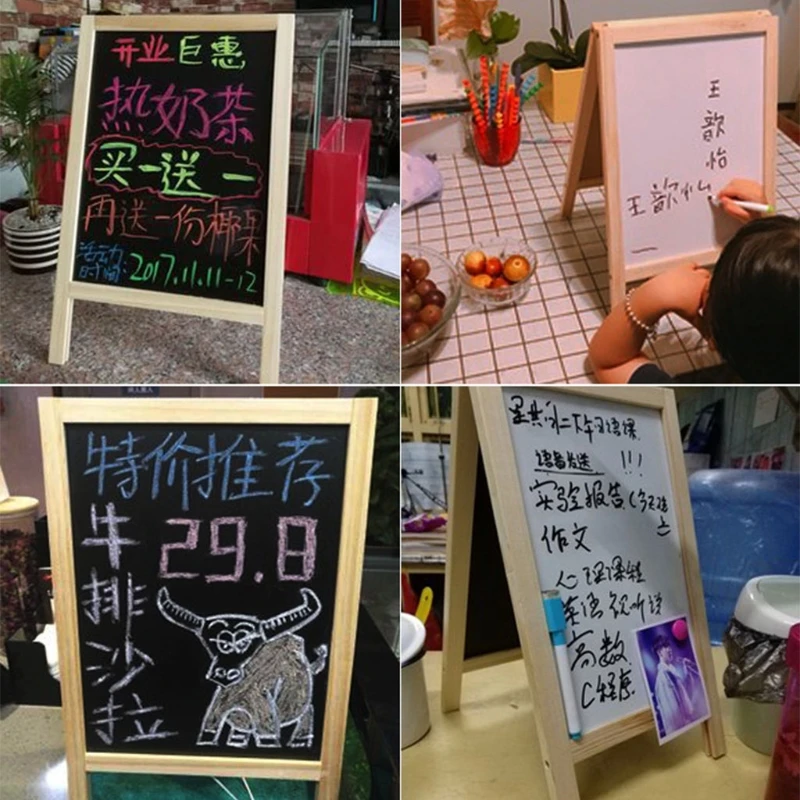 开业巨惠
热奶茶
买一送一
再送一份椰果
活动时间:2017.11.11-12
王歆怡
王歆怡
特价推荐
29.8
牛排沙拉
语音发送 !!!
实验报告(今天晚上)
作文
心理课程
英语视听说
高数
C程序